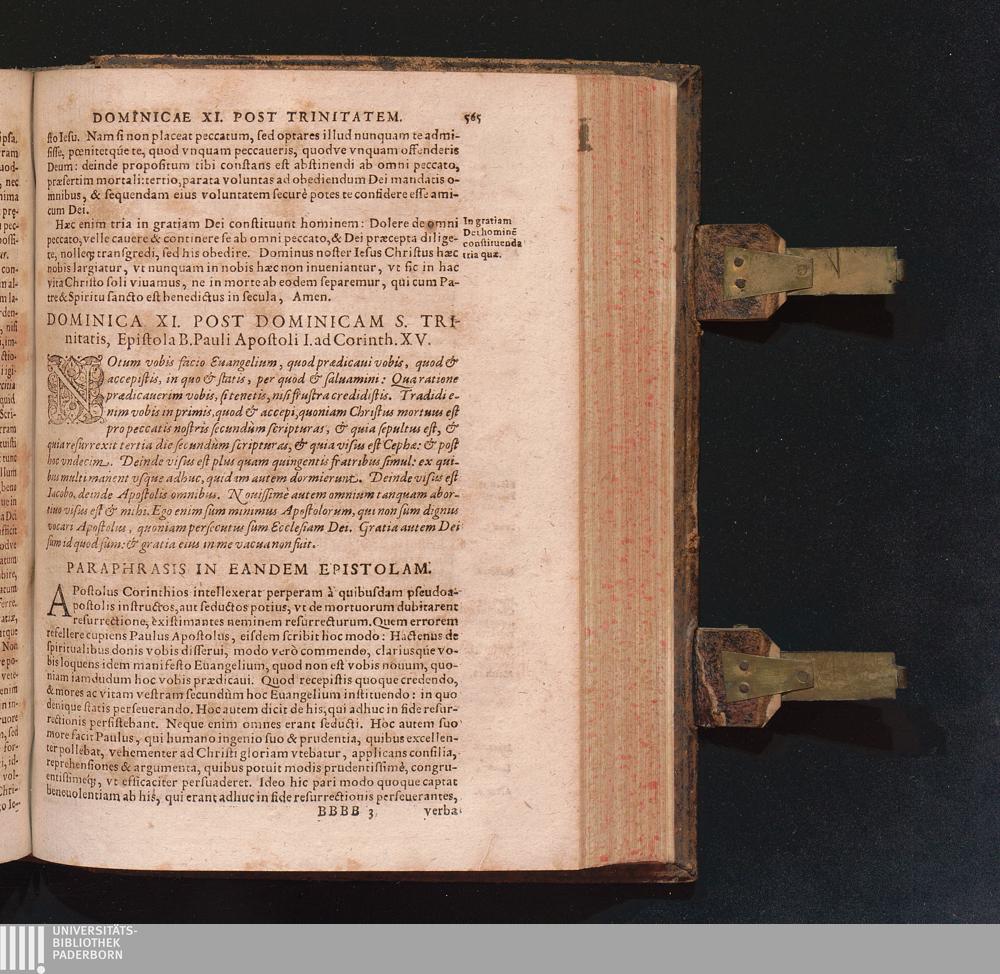 DOMINICAE XI. POST TRINITATEM. 565
sto Iesu. Nam si non placeat peccatum, sed optares illud nunquam te admi-
sisse, pœnitetq́ue te, quod vnquam peccaueris, quodve vnquam offenderis
Deum: deinde propositum tibi constans est abstinendi ab omni peccato,
præsertim mortali: tertio, parata voluntas ad obediendum Dei mandatis o-
mnibus, & sequendam eius voluntatem securè potes te confidere esse ami-
cum Dei.
Hæc enim tria in gratiam Dei constituunt hominem: Dolere de omni
peccato, velle cauere & continere se ab omni peccato, & Dei præcepta dilige-
te, nolleq; transgredi, sed his obedire. Dominus noster Iesus Christus hæc
nobis largiatur, vt nunquam in nobis hæc non inueniantur, vt sic in hac
vita Christo soli viuamus, ne in morte ab eodem separemur, qui cum Pa-
tre & Spiritu sancto est benedictus in secula, Amen.
In gratiam
Dei hominē
constituenda
tria quæ.
DOMINICA XI. POST DOMINICAM S. TRI-
nitatis, Epistola B. Pauli Apostoli I. ad Corinth. XV.
NOtum vobis facio Euangelium, quod prædicaui vobis, quod &
accepistis, in quo & statis, per quod & saluamini: Qua ratione
prædicauerim vobis, si tenetis, nisi frustra credidistis. Tradidi e-
nim vobis in primis, quod & accepi, quoniam Christus mortuus est
pro peccatis nostris secundùm scripturas, & quia sepultus est, &
quia resurrexit tertia die secundùm scripturas, & quia visus est Cephæ: & post
hoc vndecim. Deinde visus est plus quam quingentis fratribus simul: ex qui-
bus multi manent vsque adhuc, quidam autem dormierunt. Deinde visus est
Iacobo, deinde Apostolis omnibus. Nouissimè autem omnium tanquam abor-
tiuo visus est & mihi. Ego enim sum minimus Apostolorum, qui non sum dignus
vocari Apostolus, quoniam persecutus sum Ecclesiam Dei. Gratia autem Dei
sum id quod sum: & gratia eius in me vacua non fuit.
PARAPHRASIS IN EANDEM EPISTOLAM.
APostolus Corinthios intellexerat perperam à quibusdam pseudoa-
postolis instructos, aut seductos potius, vt de mortuorum dubitarent
resurrectione, existimantes neminem resurrecturum. Quem errorem
refellere cupiens Paulus Apostolus, eisdem scribit hoc modo: Hactenus de
spiritualibus donis vobis disserui, modo verò commendo, clariusque vo-
bis loquens idem manifesto Euangelium, quod non est vobis nouum, quo-
niam iamdudum hoc vobis prædicaui. Quod recepistis quoque credendo,
& mores ac vitam vestram secundùm hoc Euangelium instituendo: in quo
denique statis perseuerando. Hoc autem dicit de his, qui adhuc in fide resur-
rectionis persistebant. Neque enim omnes erant seducti. Hoc autem suo
more facit Paulus, qui humano ingenio suo & prudentia, quibus excellen-
ter pollebat, vehementer ad Christi gloriam vtebatur, applicans consilia,
reprehensiones & argumenta, quibus potuit modis prudentissimè, congru-
entissimeq;, vt efficaciter persuaderet. Ideo hic pari modo quoque captat
beneuolentiam ab his, qui erant adhuc in fide resurrectionis perseuerantes,
BBBB 3 verba
UNIVERSITÄTS-
BIBLIOTHEK
PADERBORN